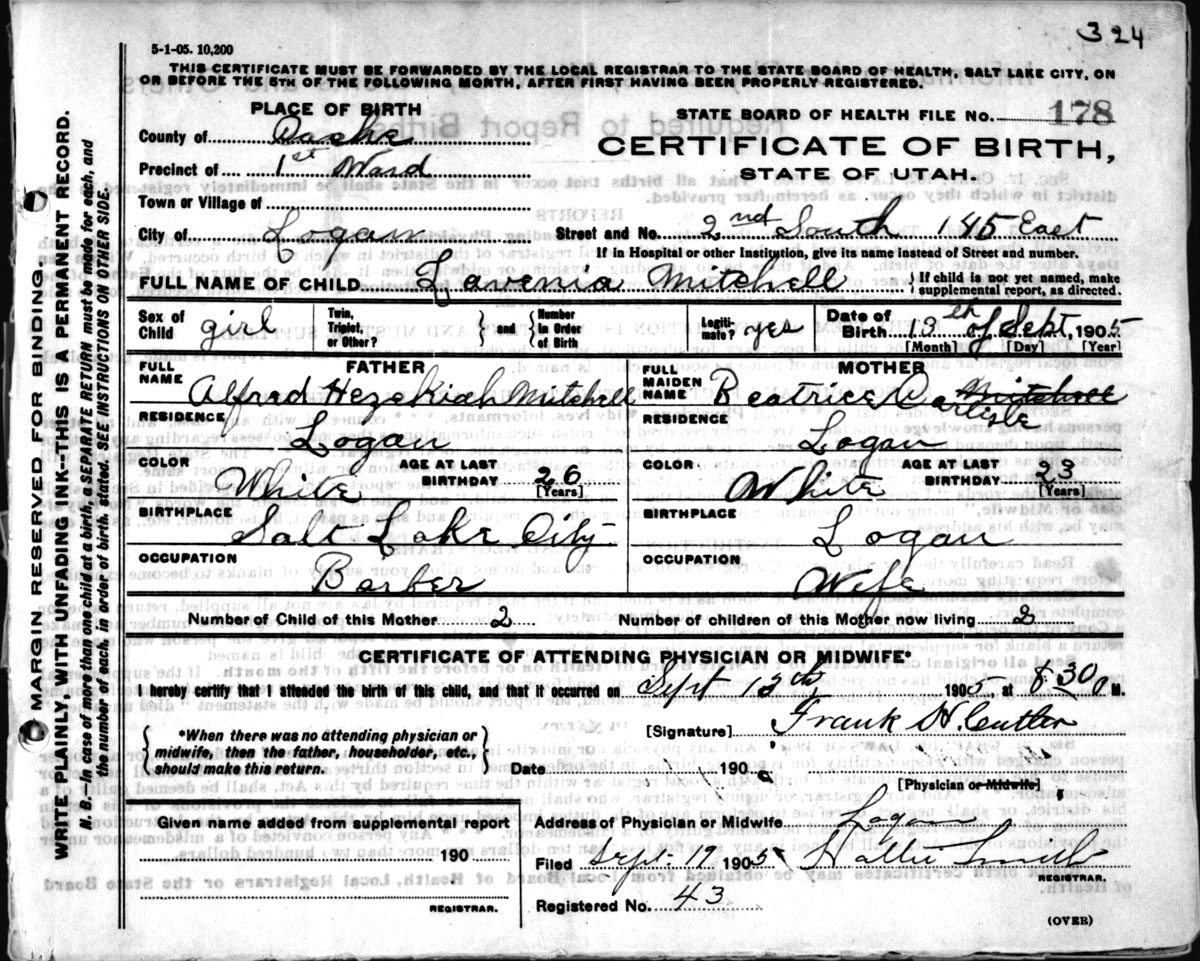 324
5-1-05. 10,200
THIS CERTIFICATE MUST BE FORWARDED BY THE LOCAL REGISTRAR TO THE STATE BOARD OF HEALTH, SALT LAKE CITY, ON
OR BEFORE THE 5TH OF THE FOLLOWING MONTH, AFTER FIRST HAVING BEEN PROPERLY REGISTERED.
PLACE OF BIRTH
STATE BOARD OF HEALTH FILE No. 178
County of Cache
CERTIFICATE OF BIRTH,
Precinct of 1st Ward
STATE OF UTAH.
Town or Village of
City of Logan Street and No. 2nd South 145 East
If in Hospital or other Institution, give its name instead of Street and number.
FULL NAME OF CHILD Lavenia Mitchell { If child is not yet named, make supplemental report, as directed.
Sex of Child girl Twin, Triplet, or Other? } and { Number in Order of Birth Legiti-mate? yes Date of Birth 13th of Sept, 1905
[Month] [Day] [Year]
FATHER
MOTHER
FULL NAME Alfred Hezekiah Mitchell
FULL MAIDEN NAME Beatrice Carlyle Mitchell
RESIDENCE Logan
RESIDENCE Logan
COLOR White AGE AT LAST BIRTHDAY 26 [Years]
COLOR White AGE AT LAST BIRTHDAY 23 [Years]
BIRTHPLACE Salt Lake City
BIRTHPLACE Logan
OCCUPATION Barber
OCCUPATION Wife
Number of Child of this Mother 2 Number of children of this Mother now living 2
CERTIFICATE OF ATTENDING PHYSICIAN OR MIDWIFE*
I hereby certify that I attended the birth of this child, and that it occurred on Sept 13th, 1905, at 8:30 P M.
{ *When there was no attending physician or midwife, then the father, householder, etc., should make this return. }
[Signature] Frank H. Cutler
Date 190
[Physician or Midwife]
Given name added from supplemental report
190
REGISTRAR.
Address of Physician or Midwife Logan
Filed Sept. 19 1905 Hattie Smith
REGISTRAR.
Registered No. 43
(OVER)
MARGIN RESERVED FOR BINDING.
WRITE PLAINLY, WITH UNFADING INK--THIS IS A PERMANENT RECORD.
N. B.--In case of more than one child at a birth, a SEPARATE RETURN must be made for each, and
the number of each, in order of birth, stated. SEE INSTRUCTIONS ON OTHER SIDE.